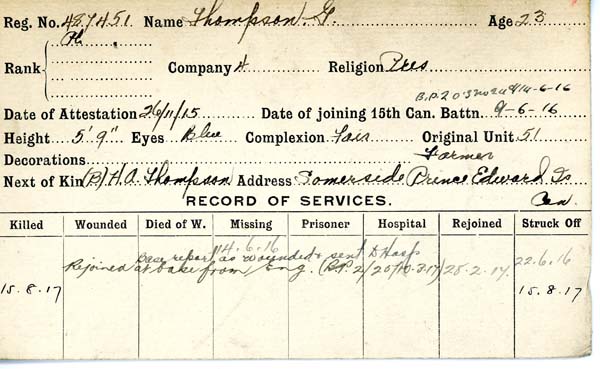 Reg. No. 487451 Name Thompson. G. Age 23
Rank Pte Company 4 Religion Pres
B.P.2 14-6-16
Date of Attestation 26/11/15 Date of joining 15th Can. Battn. 9-6-16
Height 5' 9" Eyes Blue Complexion Fair Original Unit 51
Decorations Farmer
Next of Kin (B) H.A. Thompson Address Somerside Prince Edward Is
Can.
RECORD OF SERVICES.
Killed Wounded Died of W. Missing Prisoner Hospital Rejoined Struck Off
14.6.16
Base report as wounded & sent to Hosp 22.6.16
Rejoined at base from Eng. (B.P. 2/20/10-3-17) 28-2-17.
15.8.17 15.8.17